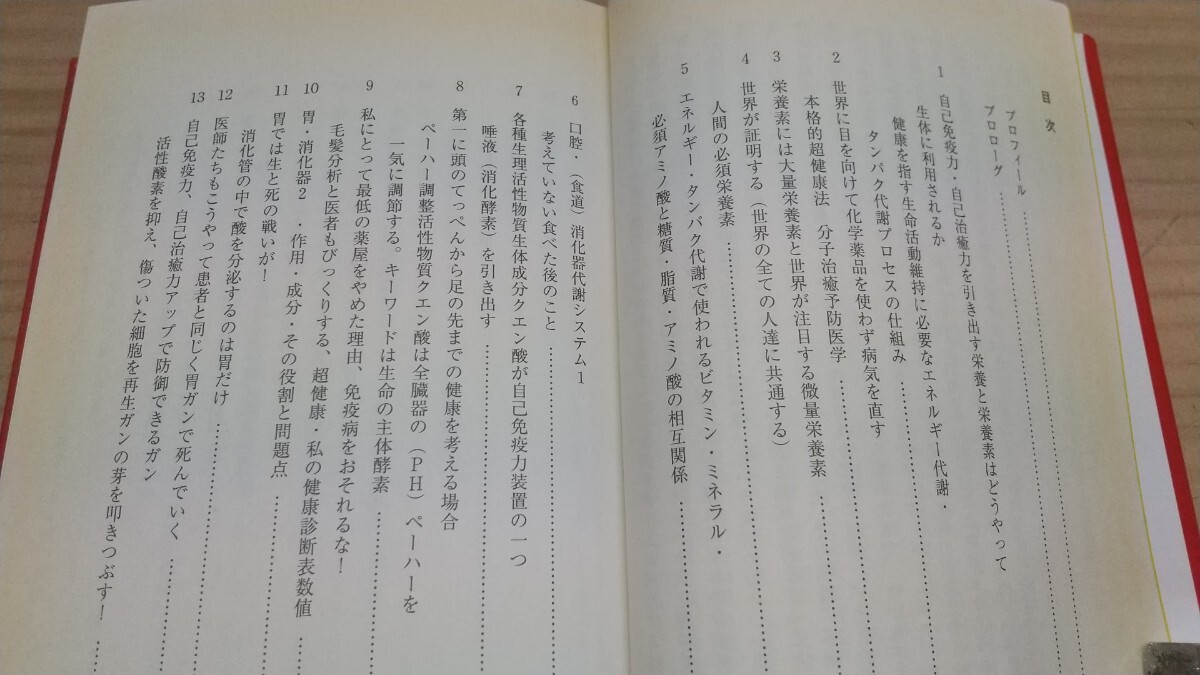 目次
プロフィール
プロローグ
1 自己免疫力・自己治癒力を引き出す栄養と栄養素はどうやって
生体に利用されるか
健康を指す生命活動維持に必要なエネルギー代謝・
タンパク代謝プロセスの仕組み
2 世界に目を向けて化学薬品を使わず病気を直す
本格的超健康法 分子治癒予防医学
3 栄養素には大量栄養素と世界が注目する微量栄養素
4 世界が証明する（世界の全ての人達に共通する）
人間の必須栄養素
5 エネルギー・タンパク代謝で使われるビタミン・ミネラル・
必須アミノ酸と糖質・脂質・アミノ酸の相互関係
6 口腔・（食道）消化器代謝システム1
考えていない食べた後のこと
7 各種生理活性物質生体成分クエン酸が自己免疫力装置の一つ
唾液（消化酵素）を引き出す
8 第一に頭のてっぺんから足の先までの健康を考える場合
ペーハー調整活性物質クエン酸は全臓器の（PH）ペーハーを
一気に調節する。キーワードは生命の主体酵素
9 私にとって最低の薬屋をやめた理由、免疫病をおそれるな！
毛髪分析と医者もびっくりする、超健康・私の健康診断表数値
10 胃・消化器2 ・作用・成分・その役割と問題点
11 胃では生と死の戦いが！
消化管の中で酸を分泌するのは胃だけ
12 医師たちもこうやって患者と同じく胃ガンで死んでいく
13 自己免疫力、自己治癒力アップで防御できるガン
活性酸素を抑え、傷ついた細胞を再生ガンの芽を叩きつぶす！